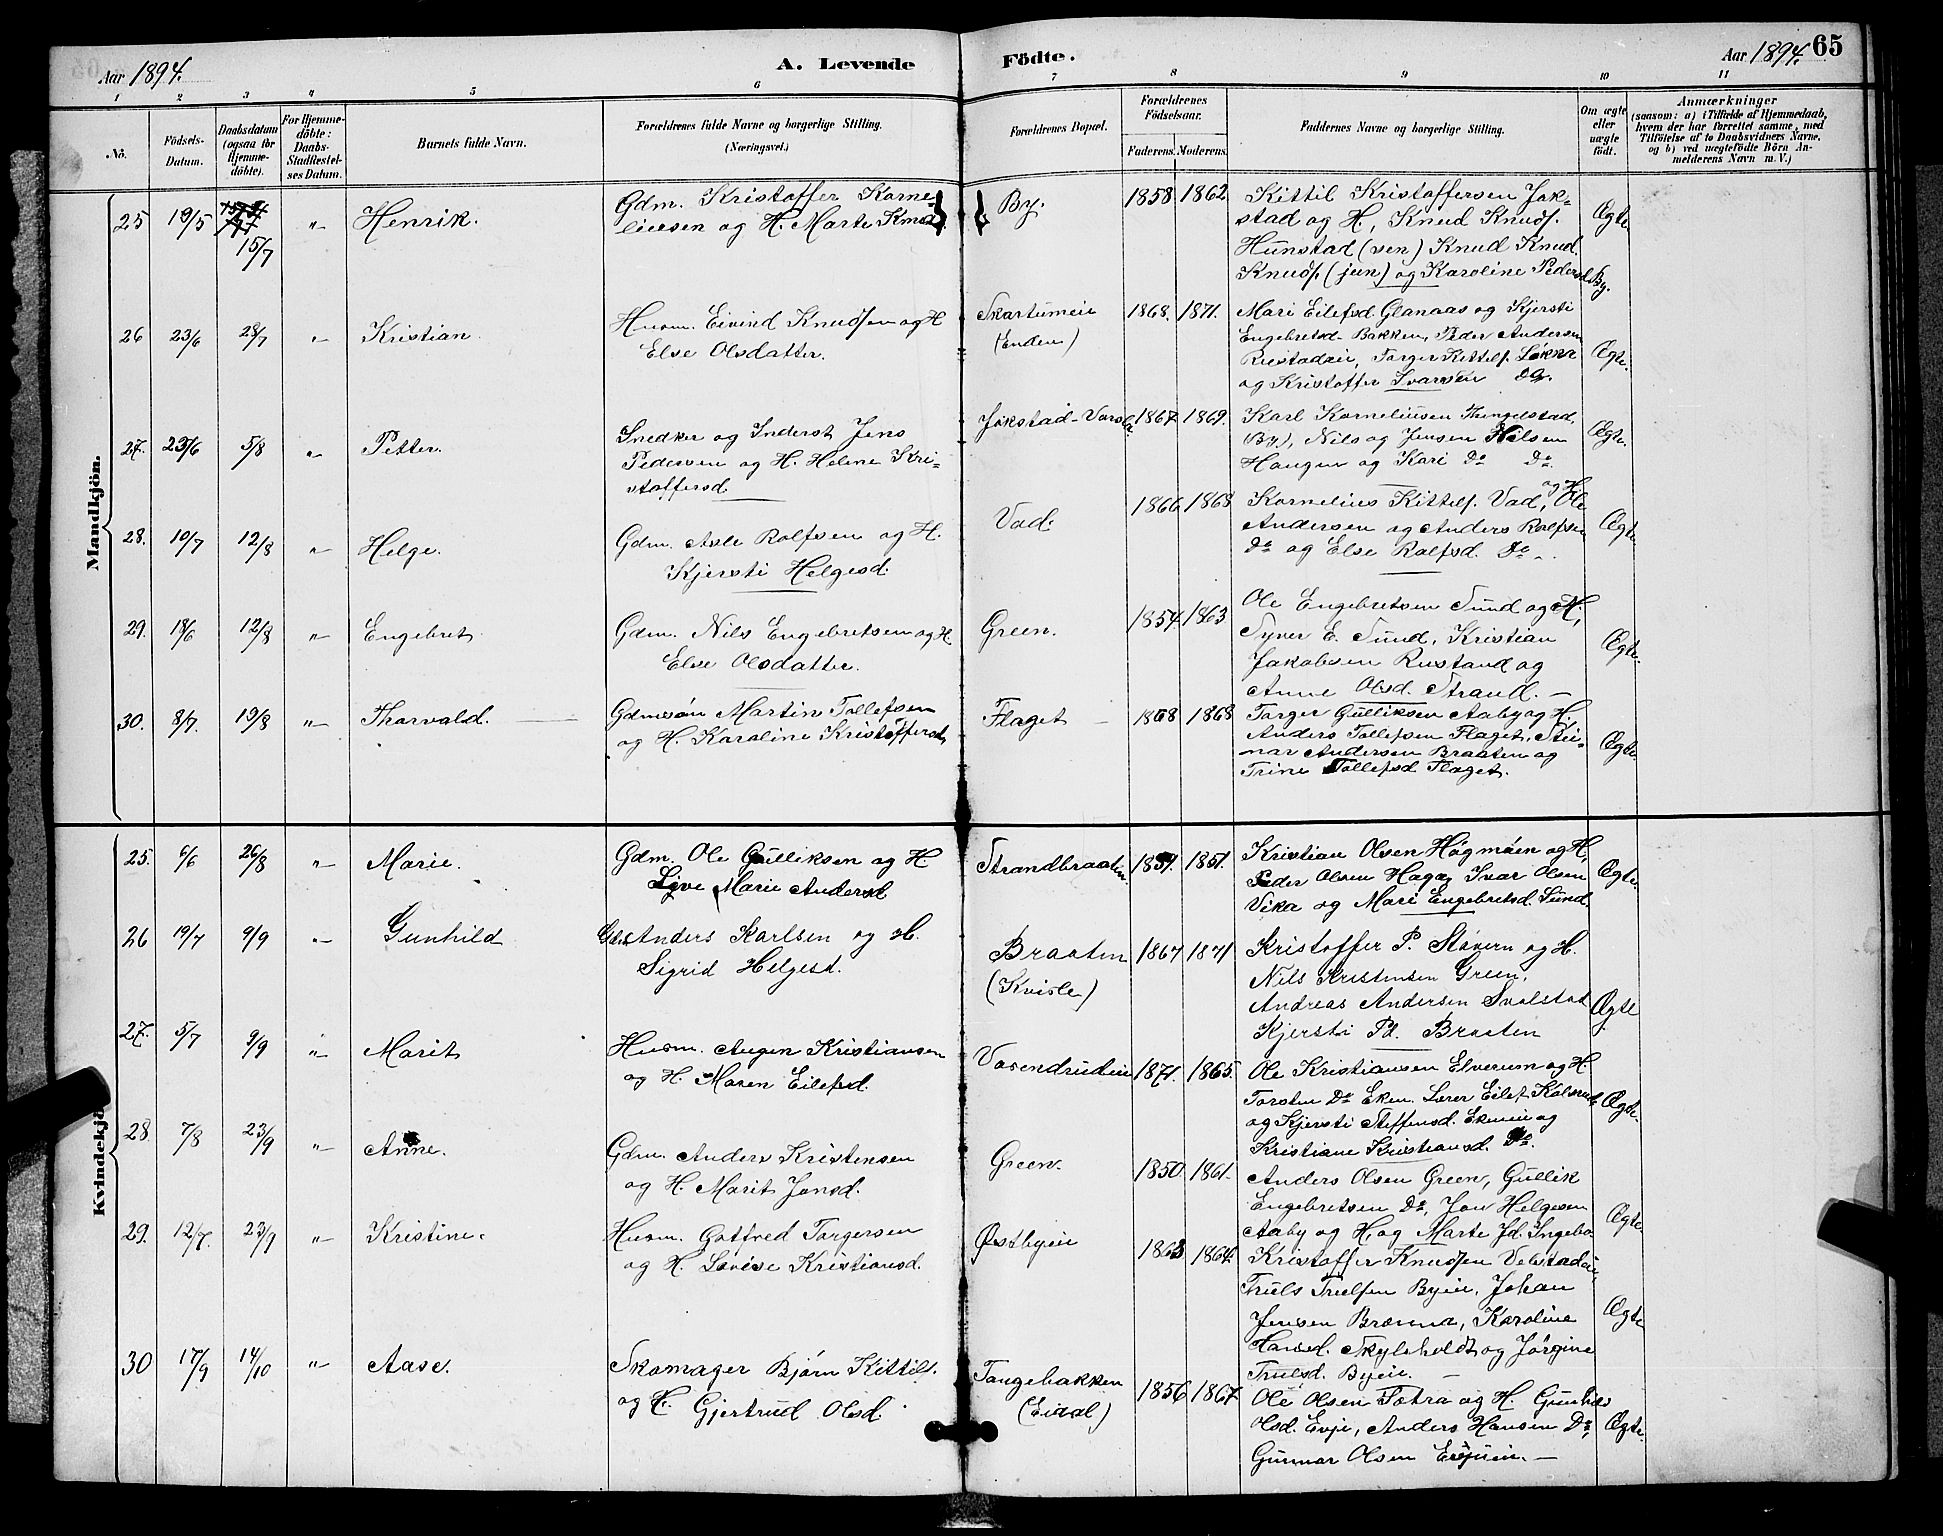 Aar 1894.
A. Levende
Födte.
Aar 1894.
65
1 2 3 4 5 6 7 8 9 10 11
No.
Födsels-Datum.
Daabsdatum (ogsaa for Hjemme-döbte).
For Hjemme-döbte: Daabs-Stadfæstel-ses Datum.
Barnets fulde Navn.
Forældrenes fulde Navne og borgerlige Stilling.
(Næringsvei.)
Forældrenes Bopæl.
Forældrenes Födselsaar.
Faderens. Moderens.
Faddernes Navne og borgerlige Stilling.
Om ægte eller uægte födt.
Anmærkninger
(saasom: a) i Tilfælde af Hjemmedaab,
hvem der har forrettet samme, med
Tilföielse af to Daabsvidners Navne,
og b) ved uægtefödte Börn An-
melderens Navn m. V.)
Mandkjön.
25 19/5 15/7 " Henrik.
Gdm. Kristoffer Korne-
liussen og H. Marte
By.
1858 1862
Kittil Kristoffersen Jok-
stad og H, Knud Knuds.
Hunstad (sen) Knud Knud.
Knuds. (jun) og Karoline Pedersd By.
Ægte
26 23/6 28/7 " Kristian.
Husm. Eivind Knudsen og H
Else Olsdatter.
Skartumeie
(Enden)
1868. 1871.
Mari Eilefsd Glanaas og Kjersti
Engebretsd. Bakken, Peder Andersen
Torger Kittels.
og Kristoffer Ivarsen Do.
Ægte.
27. 23/6 5/8 " Petter.
Snedker og Inderst Jens
Pedersen og H. Helene Kri-
stoffersd.
Jokstad-
1867. 1869.
Karl Korneliussen Thingelstad,
(By), Nils og Jensen Nilsen
Haugen og Kari Do Do.
Ægte.
28. 10/7 12/8 " Helge.
Gdm. Asle Rolfsen og H.
Kjersti Helgesd.
Vad.
1866 1868
Kornelius Kittels. Vad, og H, Ole
Andersen og Anders Rolfsen
Do og Else Rolfsd. Do.
Ægte.
29. 18/6 12/8 " Engebret.
Gdm. Nils Engebretsen og H
Else Olsdatter.
Green.
1854. 1863
Ole Engebretsen Sund og H,
Syver E. Sund, Kristian
Jakobsen Rustand og
Anne Olsd. Strand. —
Ægte.
30. 8/7. 19/8 " Thorvald.
Gdmssøn Martin Tollefsen
og H. Karoline Kristoffersd.
Flaget —
1868 1868
Torger Gulliksen Aaby og H,
Anders Tollefsen Flaget, Stei-
nar Andersen Braaten og
Trine Tollefsd Flaget.
Ægte
Kvindekjö
25. 6/6 26/8 " Marie.
Gdm. Ole Gulliksen og H.
Marie Andersd
Strandbraaten.
1851.
Kristian Olsen Høgmoen og H,
Peder Olsen Haga, Ivar Olsen
Vika og Mari Engebretsd. Sund.
Ægte.
26 19/7 9/9 " Gunhild
Gdm. Anders Karlsen og H.
Sigrid Helgesd.
Braaten
(Kvisle)
1867 1871
Kristoffer P. Støvern og H.
Nils Kristensen Green,
Andreas Andersen Svolstad
Kjersti Pd. Braaten
Ægte
27. 5/7 9/9 " Marit
Husm. Augen Kristiansen
og H. Maren Eilefsd.
Vasendrudeie
1871. 1865.
Ole Kristiansen Elverum og H.
Torsten Do Eken. Lærer Eilef
og Kjersti Steffensd. Ekeneie og
Kristiane Kristiansd. Do.
Ægte.
28 7/8 23/9 " Anne.
Gdm. Anders Kristensen
og H. Marit Jonsd.
Green.
1850. 1861.
Anders Olsen Green, Gullik
Engebretsen Do, Jon Helgesen
Aaby og H, og Marte Jd. Ingebo
Ægte
29. 12/7. 23/9 " Kristine.
Husm. Gotfred Torgersen
og H. Lovise Kristiansd.
Østbyeie
1863 1864.
Kristoffer Knudsen Velstadeie,
Truls Trulsen Byeie, Johan
Jensen Brænna, Karoline
Hansd. Skyleholdt og Jørgine
Trulsd. Byeie. —
Ægte
30 17/9 14/10 " Aase.
Skomager Bjørn Kittils.
og H. Gjertrud Olsd.
Tangebakken
(Eidal)
1856 1867.
Ole Olsen Sætra og H. Gunhild
Olsd. Evje, Anders Hansen Do,
Gunnar Olsen Evjueie. —
Ægte.